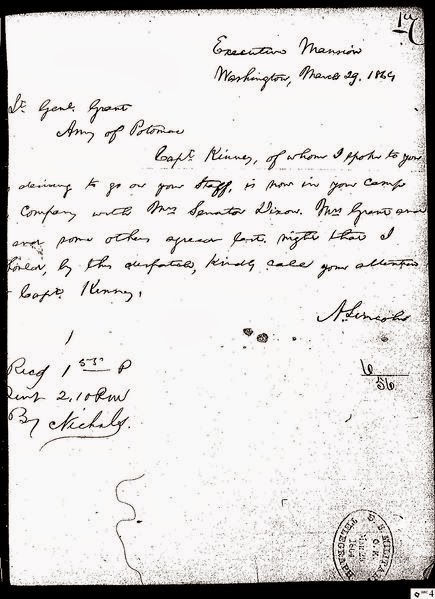 Executive Mansion
Washington, March 29. 1864
Lt. Genl. Grant
Army of Potomac
Capt. Kinney, of whom I spoke to you
desiring to go on your Staff, is now in your camp
company with Mrs Senator Dixon. Mrs Grant and
and some others agreed last night that I
should, by this despatch, kindly call your attention
Capt. Kinney.
A. Lincoln
Recd 1 55 P
Sent 2.10 PM
By Nichols.
6
56
U.S. MILITARY
TELEGRAPH